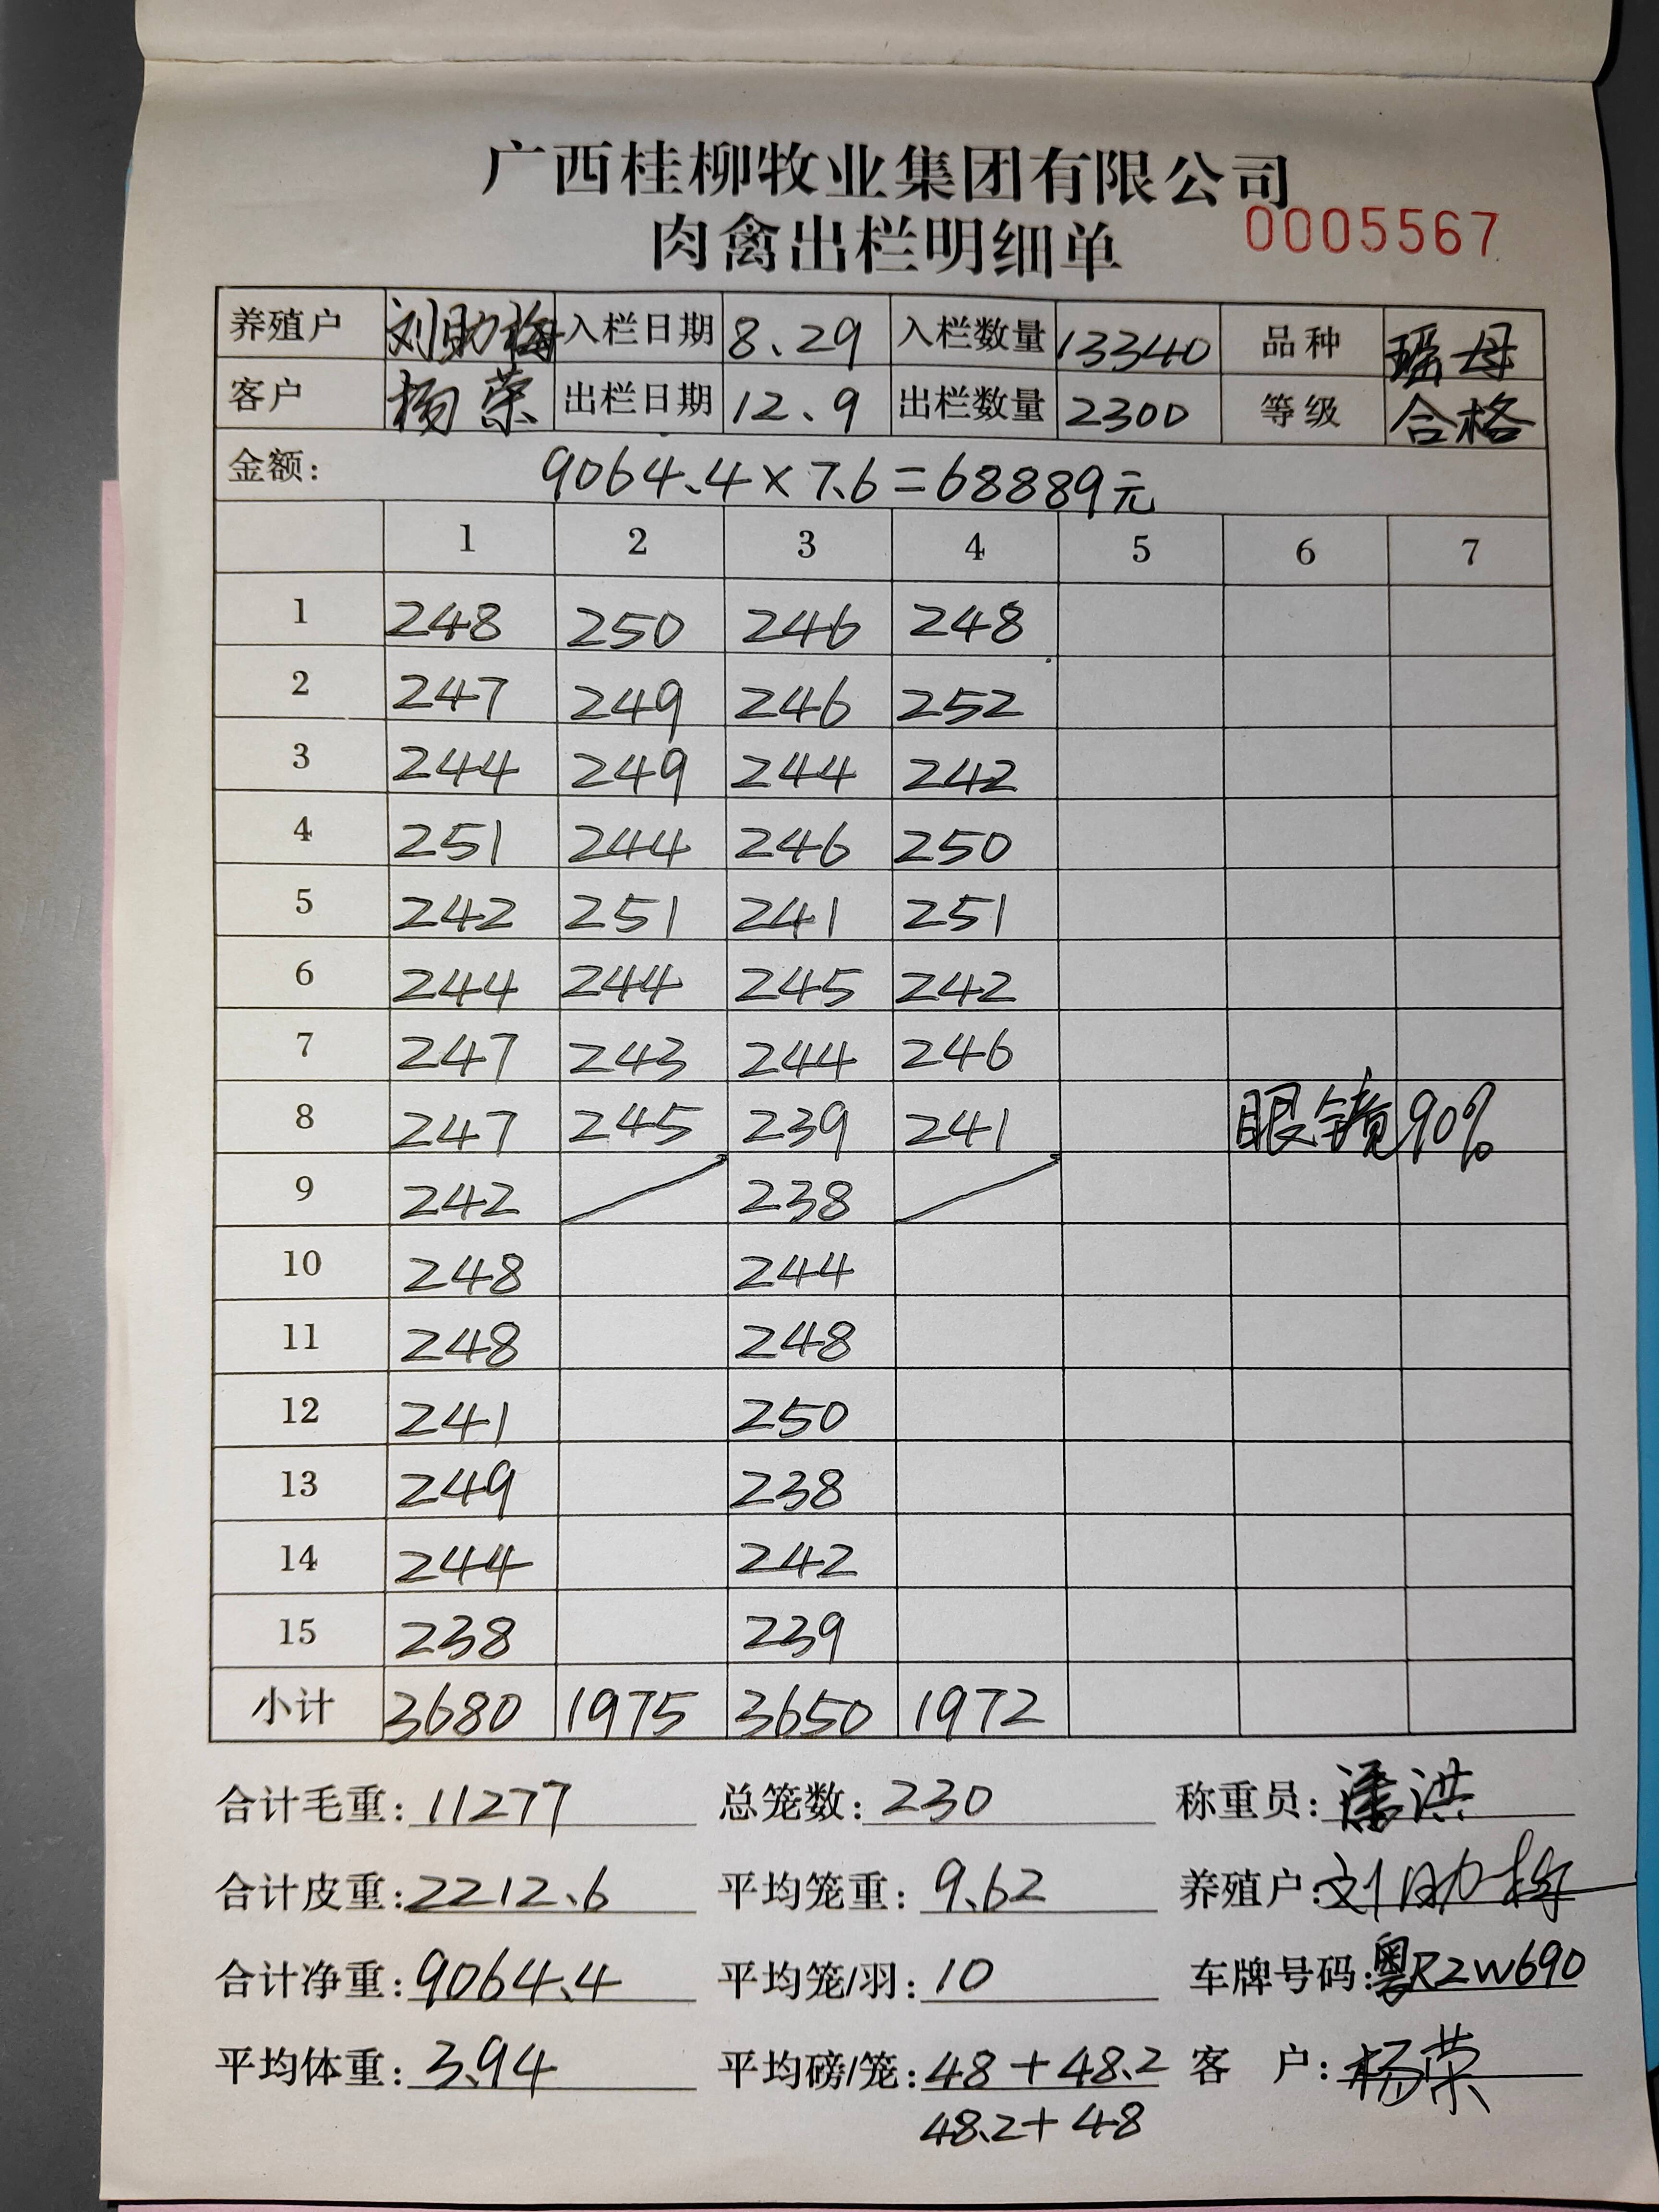 广西桂柳牧业集团有限公司
肉禽出栏明细单 0005567
养殖户 刘助梅 入栏日期 8.29 入栏数量 13340 品种 瑶母
客户 杨荣 出栏日期 12.9 出栏数量 2300 等级 合格
金额: 9064.4×7.6=68889元
1 2 3 4 5 6 7
1 248 250 246 248
2 247 249 246 252
3 244 249 244 242
4 251 244 246 250
5 242 251 241 251
6 244 244 245 242
7 247 243 244 246
8 247 245 239 241 眼镜90%
9 242 238
10 248 244
11 248 248
12 241 250
13 249 238
14 244 242
15 238 239
小计 3680 1975 3650 1972
合计毛重: 11277 总笼数: 230 称重员: 潘洪
合计皮重: 2212.6 平均笼重: 9.62 养殖户: 刘助梅
合计净重: 9064.4 平均笼/羽: 10 车牌号码: 粤R2W690
平均体重: 3.94 平均磅/笼: 48+48.2 客户: 杨荣
48.2+48